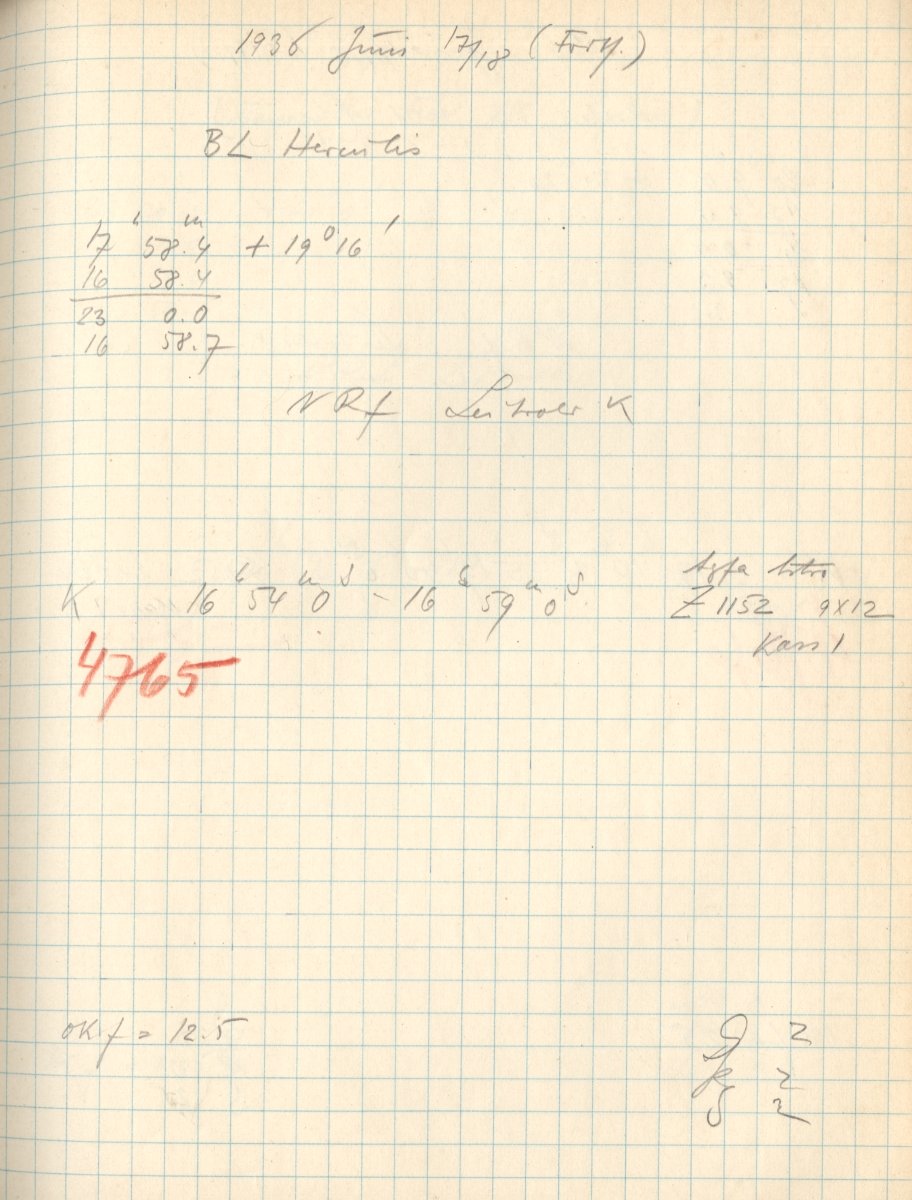 1936 Juni 17/18 (Forts.)
BL Herculis
17 h 58.4 m + 19° 16'
16 58.4
23 0.0
16 58.7
NRf Leitrohr K
K 16 h 54 m 0 s - 16 h 59 m 0 s
Agfa Astro
Z 1152 9x12
Kass 1
4765
OK f = 12.5
2
2
S 2